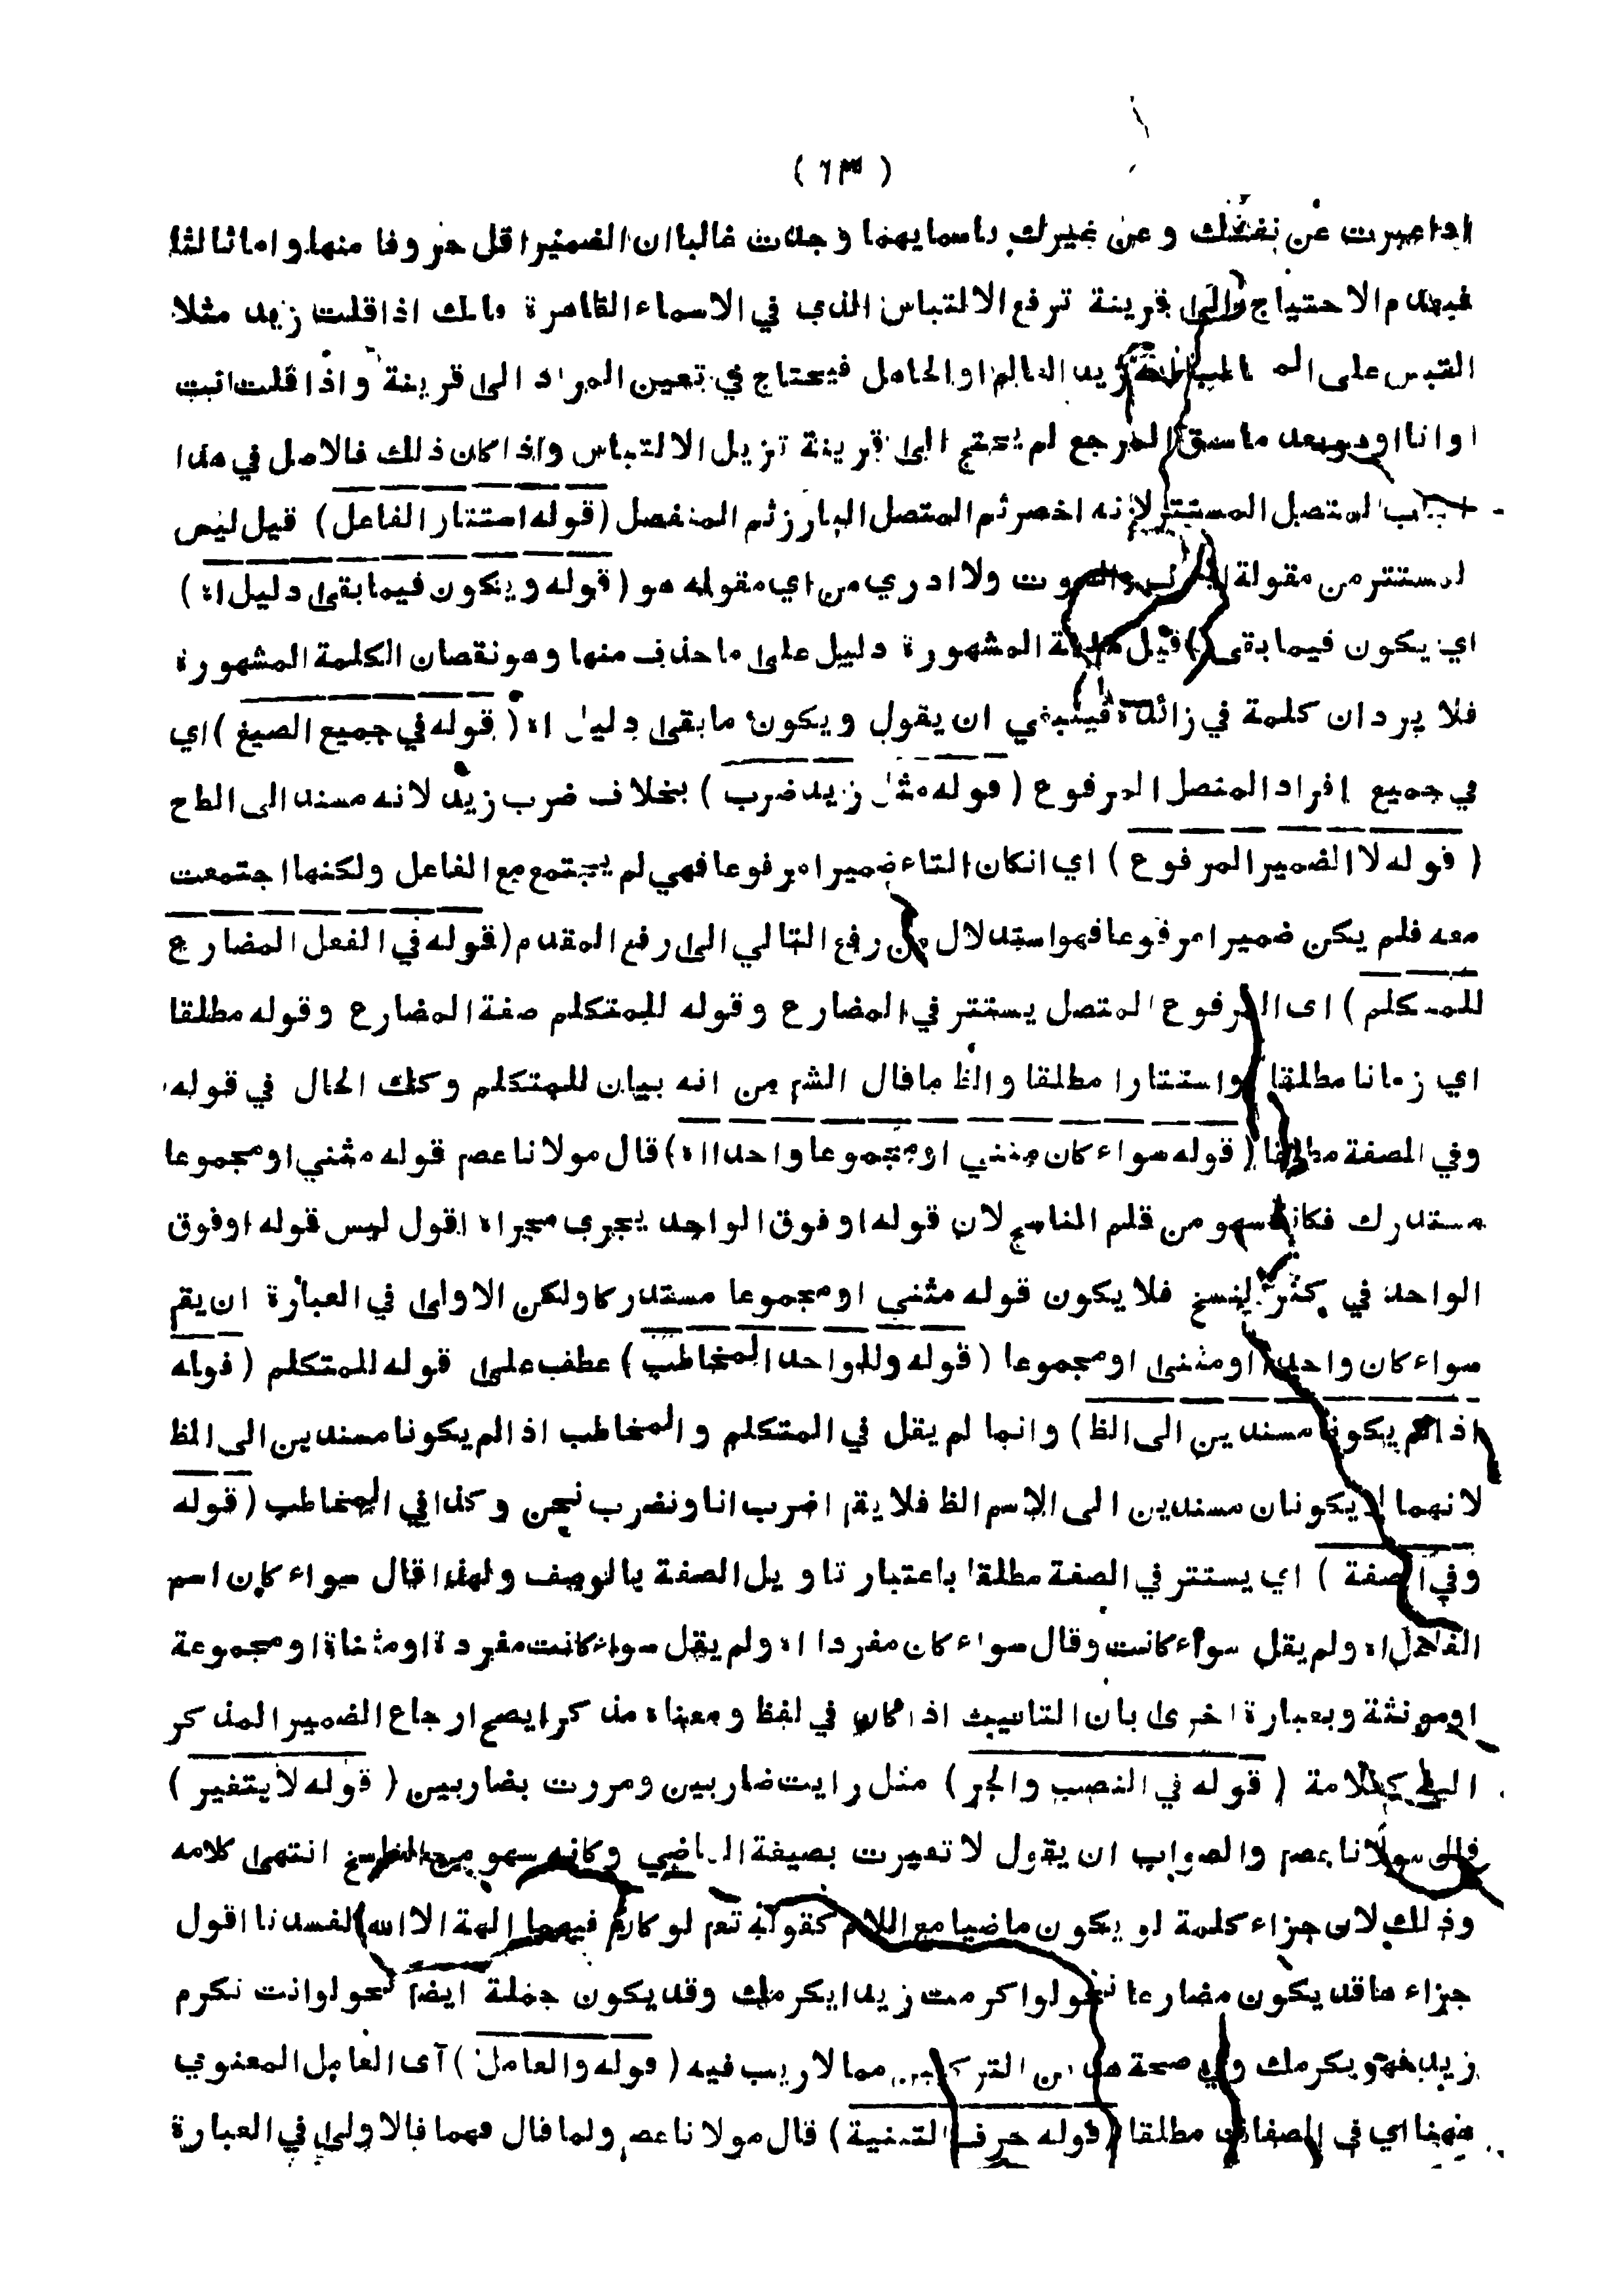 ( ٦٣ )
اذا عبرت عن نفسك و عن غيرك باسمايهما وجدت غالبا ان الضمير اقل حروفا منها و اما ثالثا
فبعدم الاحتياج الى قرينة ترفع الالتباس الذي في الاسماء الظاهرة فانك اذا قلت زيد مثلا
التبس على المخاطب زيد العالم او الجاهل فيحتاج في تعين المراد الى قرينة و اذا قلت انت
او انا او هو بعد ما سبق المرجع لم يحتج الى قرينة تزيل الالتباس واذا كان ذلك فالاصل في هذا
الباب المتصل المستتر لانه اخصر ثم المتصل البارز ثم المنفصل (قوله استتار الفاعل) قيل ليس
المستتر من مقولة الحرف والصوت ولا ادري من اي مقولة هو (قوله ويكون فيما بقى دليل اه)
اي يكون فيما بقى قيل المشهورة دليل على ما حذف منها وهو نقصان الكلمة المشهورة
فلا يرد ان كلمة في زائدة فينبغي ان يقول ويكون ما بقى دليل اه (قوله في جميع الصيغ) اي
في جميع افراد المتصل المرفوع (قوله مثل زيد ضرب) بخلاف ضرب زيد لانه مسند الى الظاهر
(قوله لا الضمير المرفوع) اي انكان التاء ضميرا مرفوعا فهي لم يجتمع مع الفاعل ولكنها اجتمعت
معه فلم يكن ضميرا مرفوعا فهو استدلال من رفع التالي الى رفع المقدم (قوله في الفعل المضارع
للمتكلم) اى المرفوع المتصل يستتر في المضارع وقوله للمتكلم صفة المضارع وقوله مطلقا
اي زمانا مطلقا واستتارا مطلقا والظ ما قال الشم من انه بيان للمتكلم وكك الحال في قوله
وفي الصفة مطلقا (قوله سواء كان مثنى او مجموعا واحدا اه) قال مولانا عصم قوله مثنى او مجموعا
مستدرك فكانه سهو من قلم الناسخ لان قوله او فوق الواحد يجرى مجراه اقول ليس قوله او فوق
الواحد في كثر النسخ فلا يكون قوله مثنى او مجموعا مستدركا ولكن الاولى في العبارة ان يقم
سواء كان واحدا او مثنى او مجموعا (قوله وللواحد المخاطب) عطف على قوله للمتكلم (قوله
اذا لم يكونا مسندين الى الظ) وانما لم يقل في المتكلم و المخاطب اذا لم يكونا مسندين الى الظ
لانهما لا يكونان مسندين الى الاسم الظ فلا يقم اضرب انا ونضرب نحن وكذا في المخاطب (قوله
وفي الصفة) اي يستتر في الصفة مطلقا باعتبار تاويل الصفة بالوصف ولهذا قال سواء كان اسم
الفاعل اه ولم يقل سواء كانت وقال سواء كان مفردا اه ولم يقل سواء كانت مفردة او مثناة او مجموعة
او مونثة وبعبارة اخرى بان التانيث اذا كان في لفظ ومعناه مذكرا يصح ارجاع الضمير المذكر
اليه كعلامة (قوله في النصب والجر) مثل رايت ضاربين ومررت بضاربين (قوله لا يتغير)
قال مولانا عصم والصواب ان يقول لا تغيرت بصيغة الماضي وكانه سهو من الناسخ انتهى كلامه
وذلك لان جزاء كلمة لو يكون ماضيا مع اللام كقوله تعم لو كان فيهما الهة الا الله لفسدنا اقول
جزاء ها قد يكون مضارعا نحو لو اكرمت زيدا يكرمك وقد يكون جملة ايضا نحو لو انت تكرم
زيد فهو يكرمك وفي صحة هذين التركيبين مما لا ريب فيه (قوله والعامل) اى العامل المعنوي
ههنا اي في الصفات مطلقا (قوله حرف التثنية) قال مولانا عصم ولما قال فهما فالاولى في العبارة